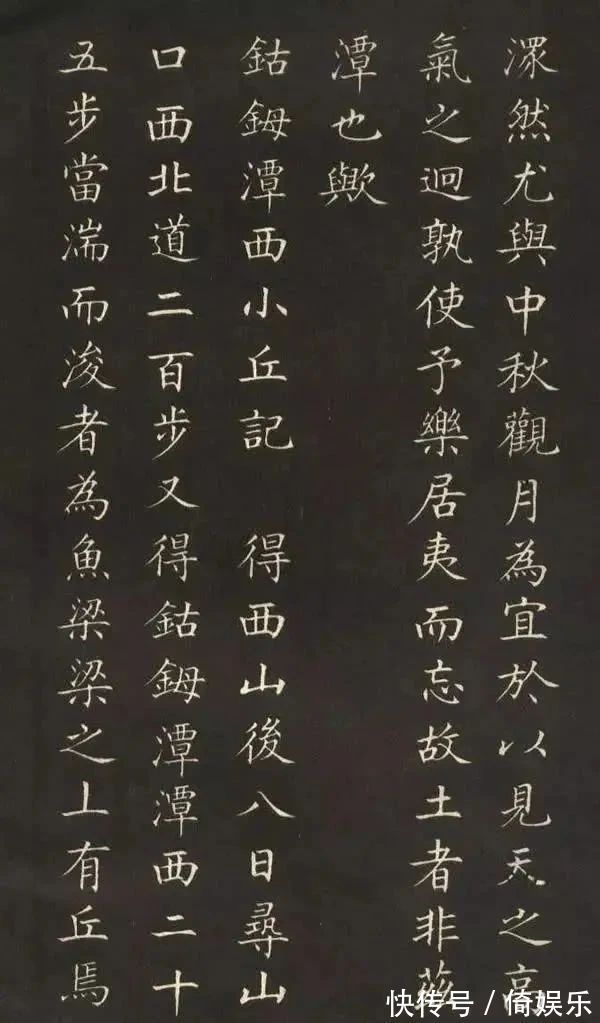 潀然尤與中秋觀月為宜於以見天之高
氣之迥孰使予樂居夷而忘故土者非茲
潭也歟
鈷鉧潭西小丘記 得西山後八日尋山
口西北道二百步又得鈷鉧潭潭西二十
五步當湍而浚者為魚梁梁之上有丘焉
快传号/倚娱乐